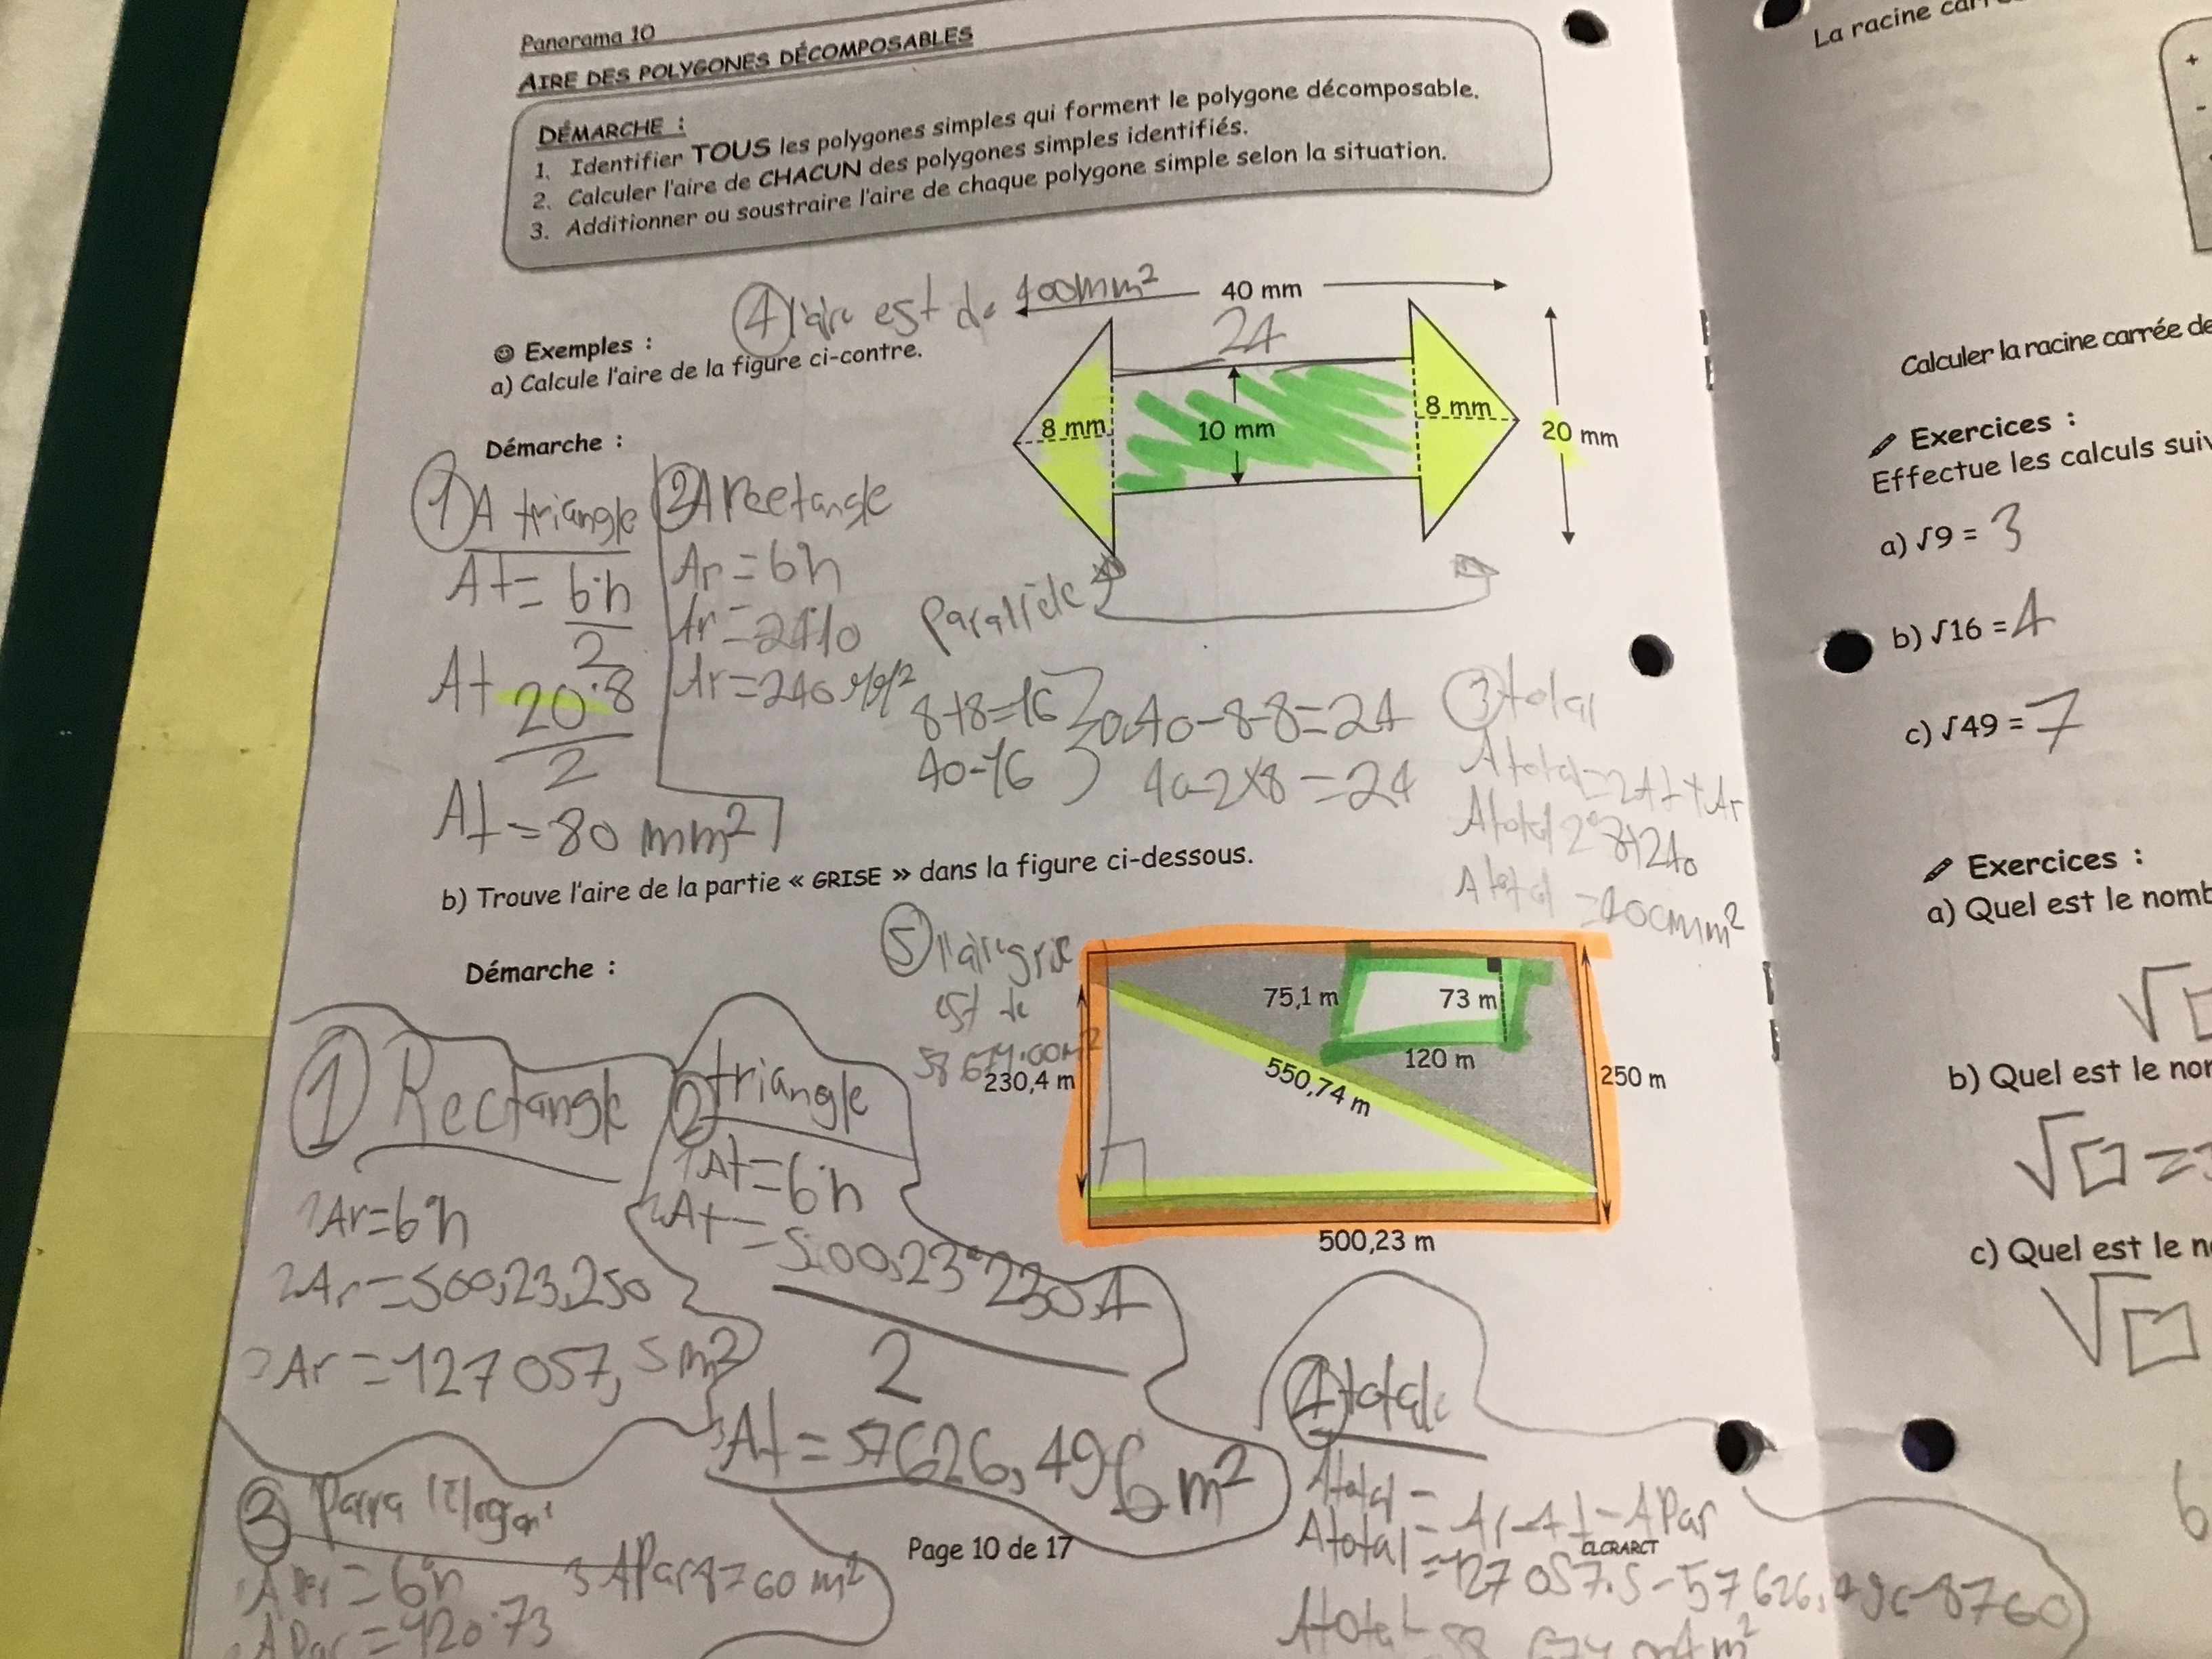 Panorama 10
AIRE DES POLYGONES DÉCOMPOSABLES
DÉMARCHE :
1. Identifier TOUS les polygones simples qui forment le polygone décomposable.
2. Calculer l'aire de CHACUN des polygones simples identifiés.
3. Additionner ou soustraire l'aire de chaque polygone simple selon la situation.
④ l'aire est de 400mm²
40 mm
24
☺ Exemples :
a) Calcule l'aire de la figure ci-contre.
8 mm
10 mm
8 mm
20 mm
Démarche :
① A triangle
At = b·h
2
At 20·8
2
At = 80 mm²
② A Rectangle
Ar = bh
Ar = 24·10
Ar = 240 mm²
Parallèle
8+8=16
40-16
40-8-8=24
40-2×8=24
③ total
A total = 2At + Ar
A total 2·8+240
A total = 400mm²
b) Trouve l'aire de la partie « GRISE » dans la figure ci-dessous.
Démarche :
⑤ l'aire grise
est de
230,4 m
75,1 m
73 m
120 m
550,74 m
250 m
500,23 m
① Rectangle
Ar = bh
Ar = 500,23,250
Ar = 127 057,5 m²
② triangle
At = b·h
At = 500,23·230,4
2
At = 57626,496 m²
③ Parallélogram
APar = bh
APar = 120·73
APar 8760 m²
④ totale
Atotal =
Atotal = Ar-At-APar
Atotal = 127 057.5 - 57 626,496-8760
Page 10 de 17
CLCRARCT
La racine
+
-
Calculer la racine carrée de
Exercices :
Effectue les calculs
a) √9 = 3
b) √16 = 4
c) √49 = 7
Exercices :
a) Quel est le
√□
b) Quel est le
√□ =
c) Quel est le
√□
6